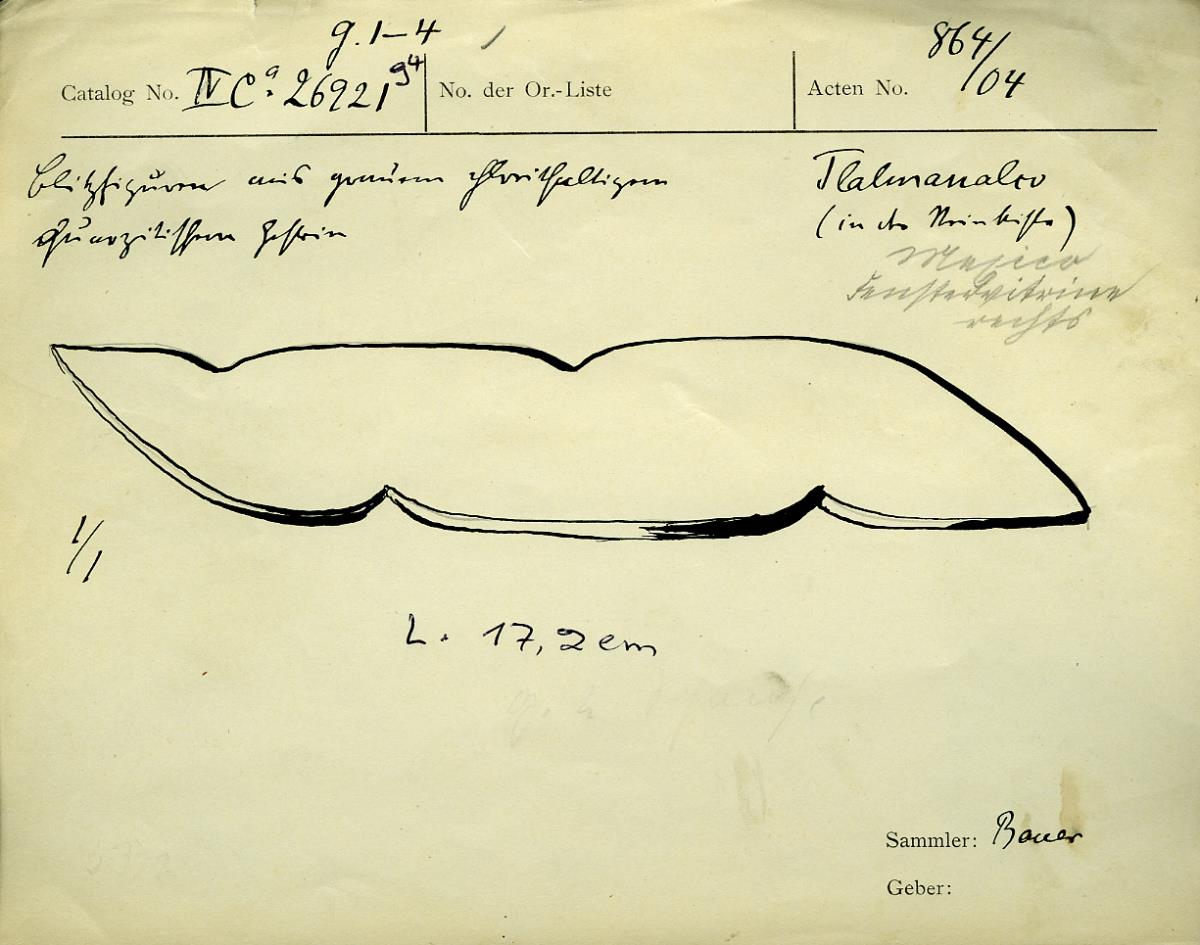 g. 1–4
Catalog No. IV Ca. 26921 g4
No. der Or.-Liste
Acten No. 864/04
Blitzfiguren aus grauem chlorithaltigem
quarzitischem Gestein
Tlalmanalco
(in der Steinkiste)
Mexico
Fenstervitrine
rechts
1/1
L. 17,2 cm
Sammler: Bauer
Geber: